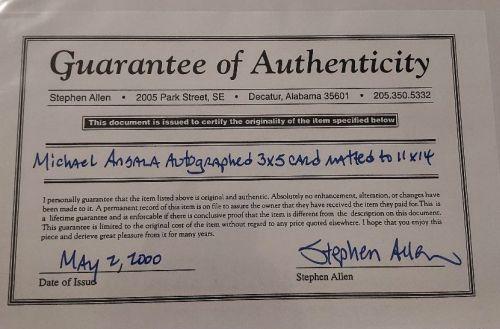 Guarantee of Authenticity
Stephen Allen • 2005 Park Street, SE • Decatur, Alabama 35601 • 205.350.5332
This document is issued to certify the originality of the item specified below
Michael Ansara Autographed 3x5 card matted to 11x14
I personally guarantee that the item listed above is original and authentic. Absolutely no enhancement, alteration, or changes have
been made to it. A permanent record of this item is on file to assure the owner that they have received the item they paid for. This is
a lifetime guarantee and is enforceable if there is conclusive proof that the item is different from the description on this document.
This guarantee is limited to the original cost of the item without regard to any price quoted elsewhere. I hope that you enjoy this
piece and derieve great pleasure from it for many years.
May 2, 2000
Stephen Allen
Date of Issue
Stephen Allen